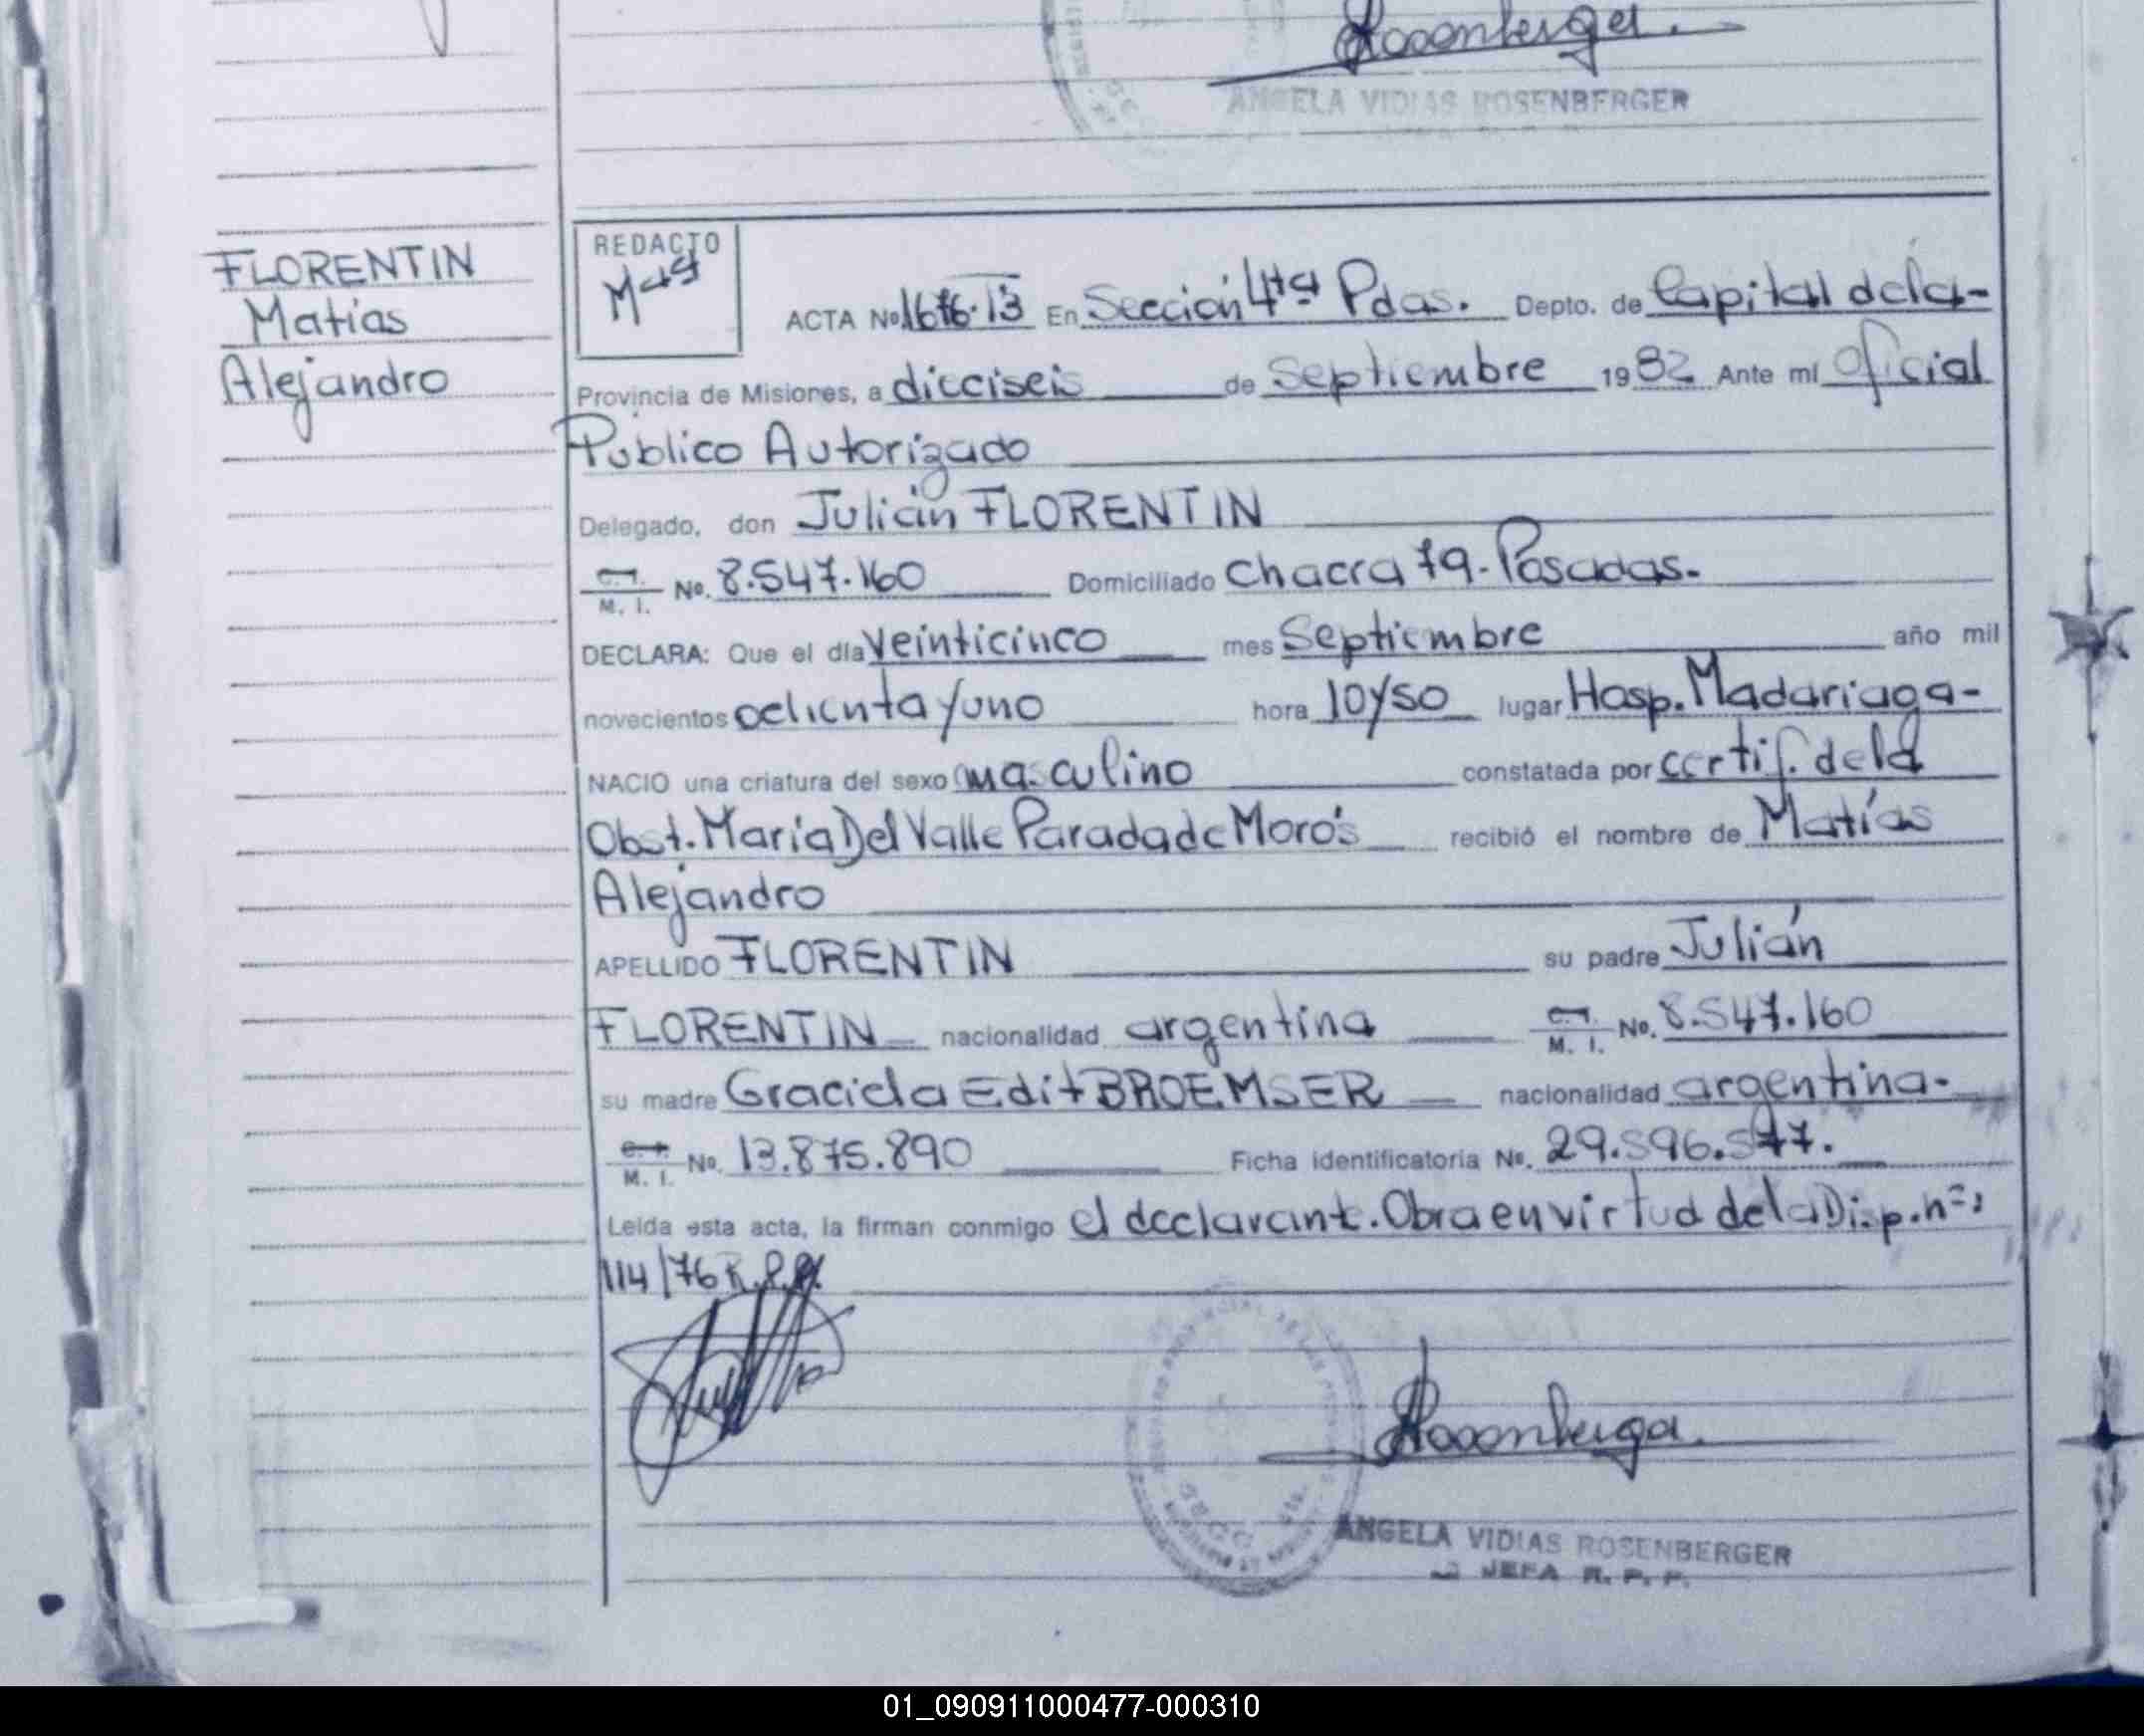 Rosenberger.
ANGELA VIDIAS ROSENBERGER
FLORENTIN
Matías
Alejandro
REDACTO
ACTA No En Sección 4ta Pdas. Depto. de Capital de la-
Provincia de Misiones, a dieciseis de Septiembre 1982 Ante mí Oficial
Público Autorizado
Delegado, don Julián FLORENTIN
C.I. M. I. No. 8.547.160 Domiciliado Chacra 79. Posadas.
DECLARA: Que el día veinticinco mes Septiembre año mil
novecientos ochenta y uno hora 10y50 lugar Hosp. Madariaga-
NACIO una criatura del sexo masculino constatada por certif. de la
Obst. María Del Valle Parada de Moro's recibió el nombre de Matías
Alejandro
APELLIDO FLORENTIN su padre Julián
FLORENTIN nacionalidad argentina C.I. M. I. No. 8.547.160
su madre Graciela Edit BROEMSER nacionalidad argentina.
C.I. M. I. No. 13.875.890 Ficha identificatoria No. 29.596.577.
Leída esta acta, la firman conmigo el declarante. Obra en virtud de la Disp. nº:
114/76 R.P.P.
Rosenberger.
ANGELA VIDIAS ROSENBERGER
JEFA R. P. P.
01_090911000477-000310